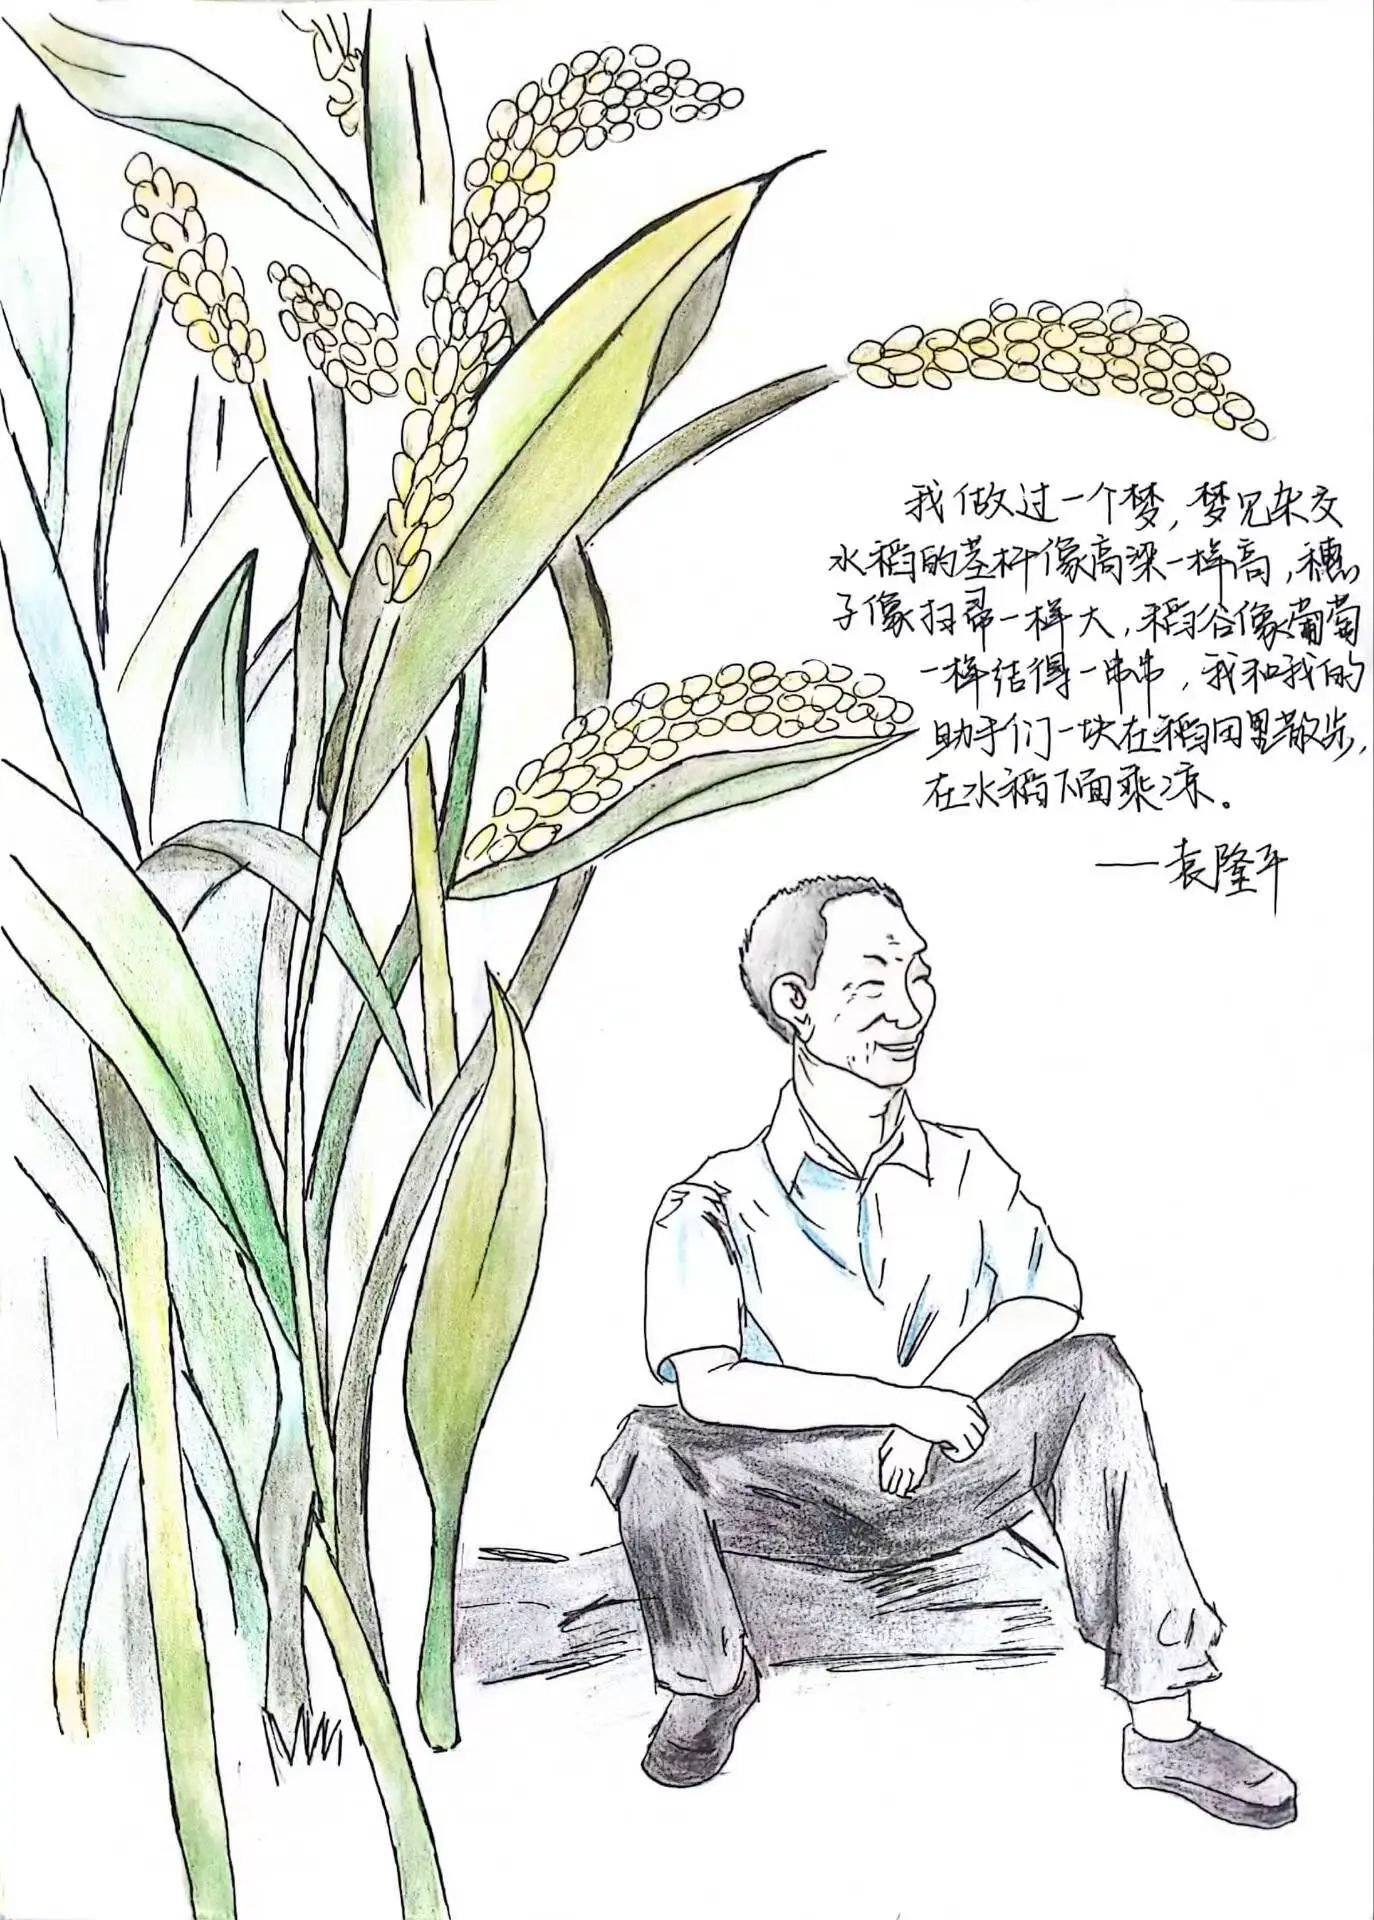 我做过一个梦，梦见杂交
水稻的茎杆像高梁一样高，穗
子像扫帚一样大，稻谷像葡萄
一样结得一串串，我和我的
助手们一块在稻田里散步，
在水稻下面乘凉。
——袁隆平